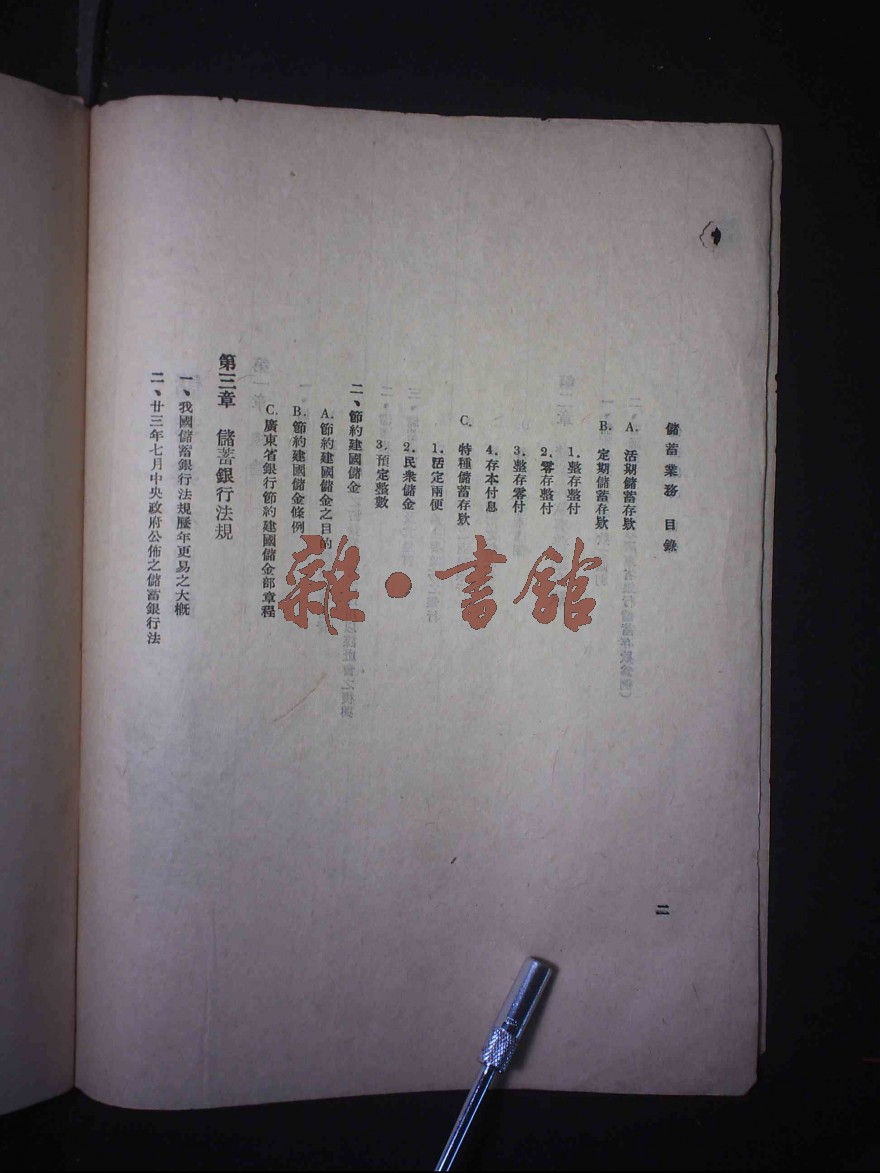 儲蓄業務 目錄
A. 活期儲蓄存欵
B. 定期儲蓄存欵
1. 整存整付
2. 零存整付
3. 整存零付
4. 存本付息
C. 特種儲蓄存欵
1. 活定兩便
2. 民衆儲金
3. 預定整數
二、節約建國儲金
A. 節約建國儲金之目的
B. 節約建國儲金條例
C. 廣東省銀行節約建國儲金部章程
第三章 儲蓄銀行法規
一、我國儲蓄銀行法規歷年更易之大概
二、廿三年七月中央政府公佈之儲蓄銀行法
二
雜·書館